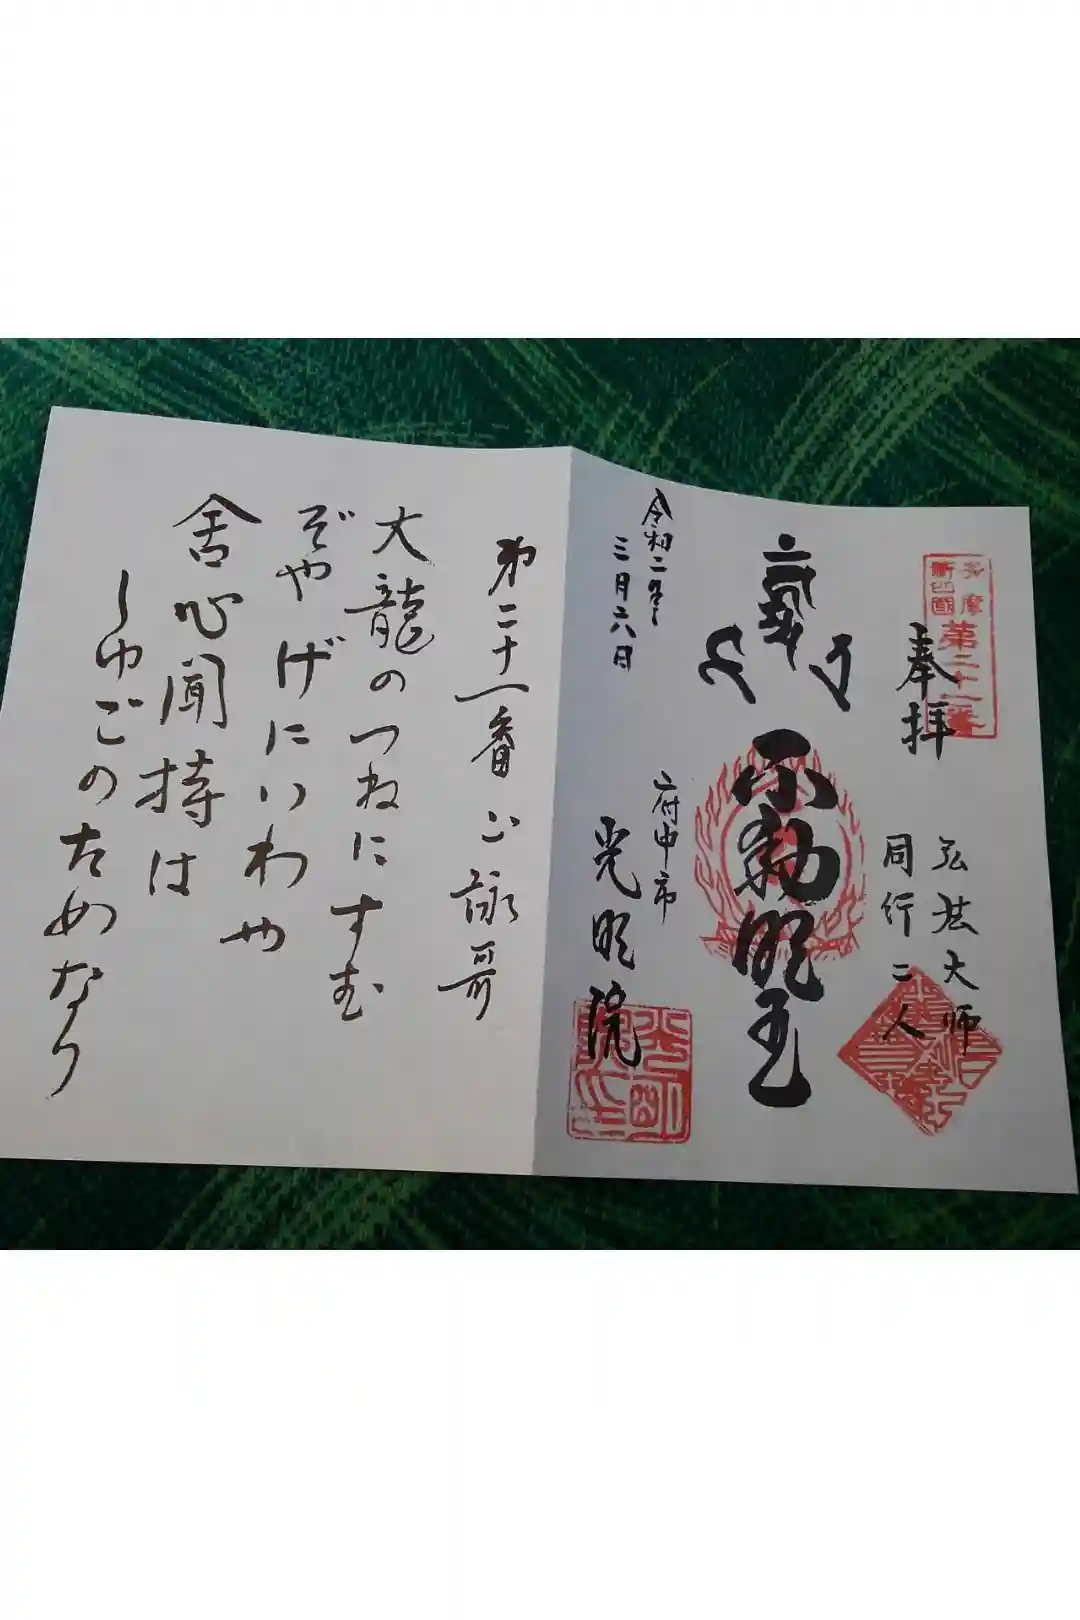 多摩
新四国
第二十一番
奉拝
弘法大师
同行二人
不動明王
令和二年
三月六日
府中市
光明院
光明
院
第二十一番ご詠哥
大龍のつねにすむ
ぞやげにいわや
舍心聞持は
しゆごの
ためなり